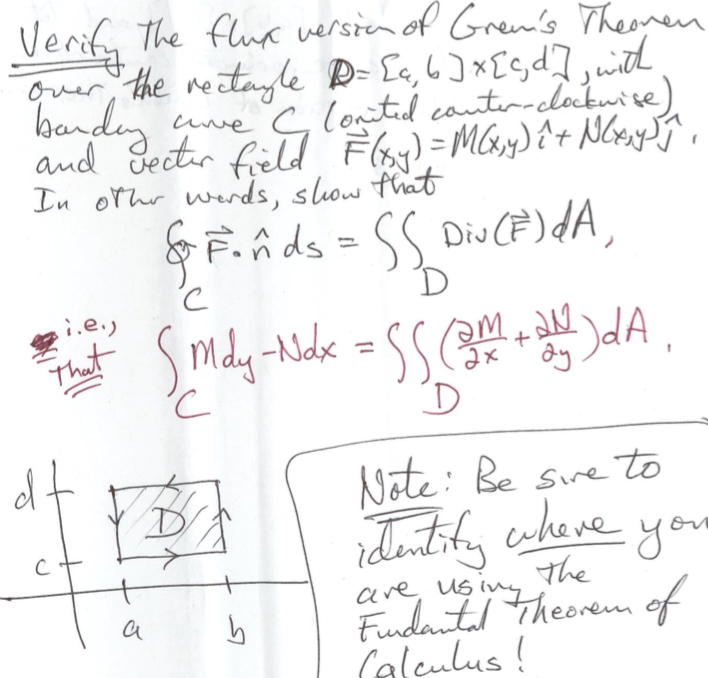 Verify the flux version of Green's Theorem
over the rectangle D = [a, b] × [c, d], with
bounday curve C (orinted counter-clockwise)
and vector field F⃗(x,y) = M(x,y) î + N(x,y) ĵ.
In other words, show that
∮_C F⃗ · n̂ ds = ∬_D Div(F⃗) dA,
i.e.,
that ∫_C M dy - N dx = ∬_D (∂M/∂x + ∂N/∂y) dA.
d
D
c
a b
Note: Be sure to
identify where you
are using the
Fundamental Theorem of
Calculus!